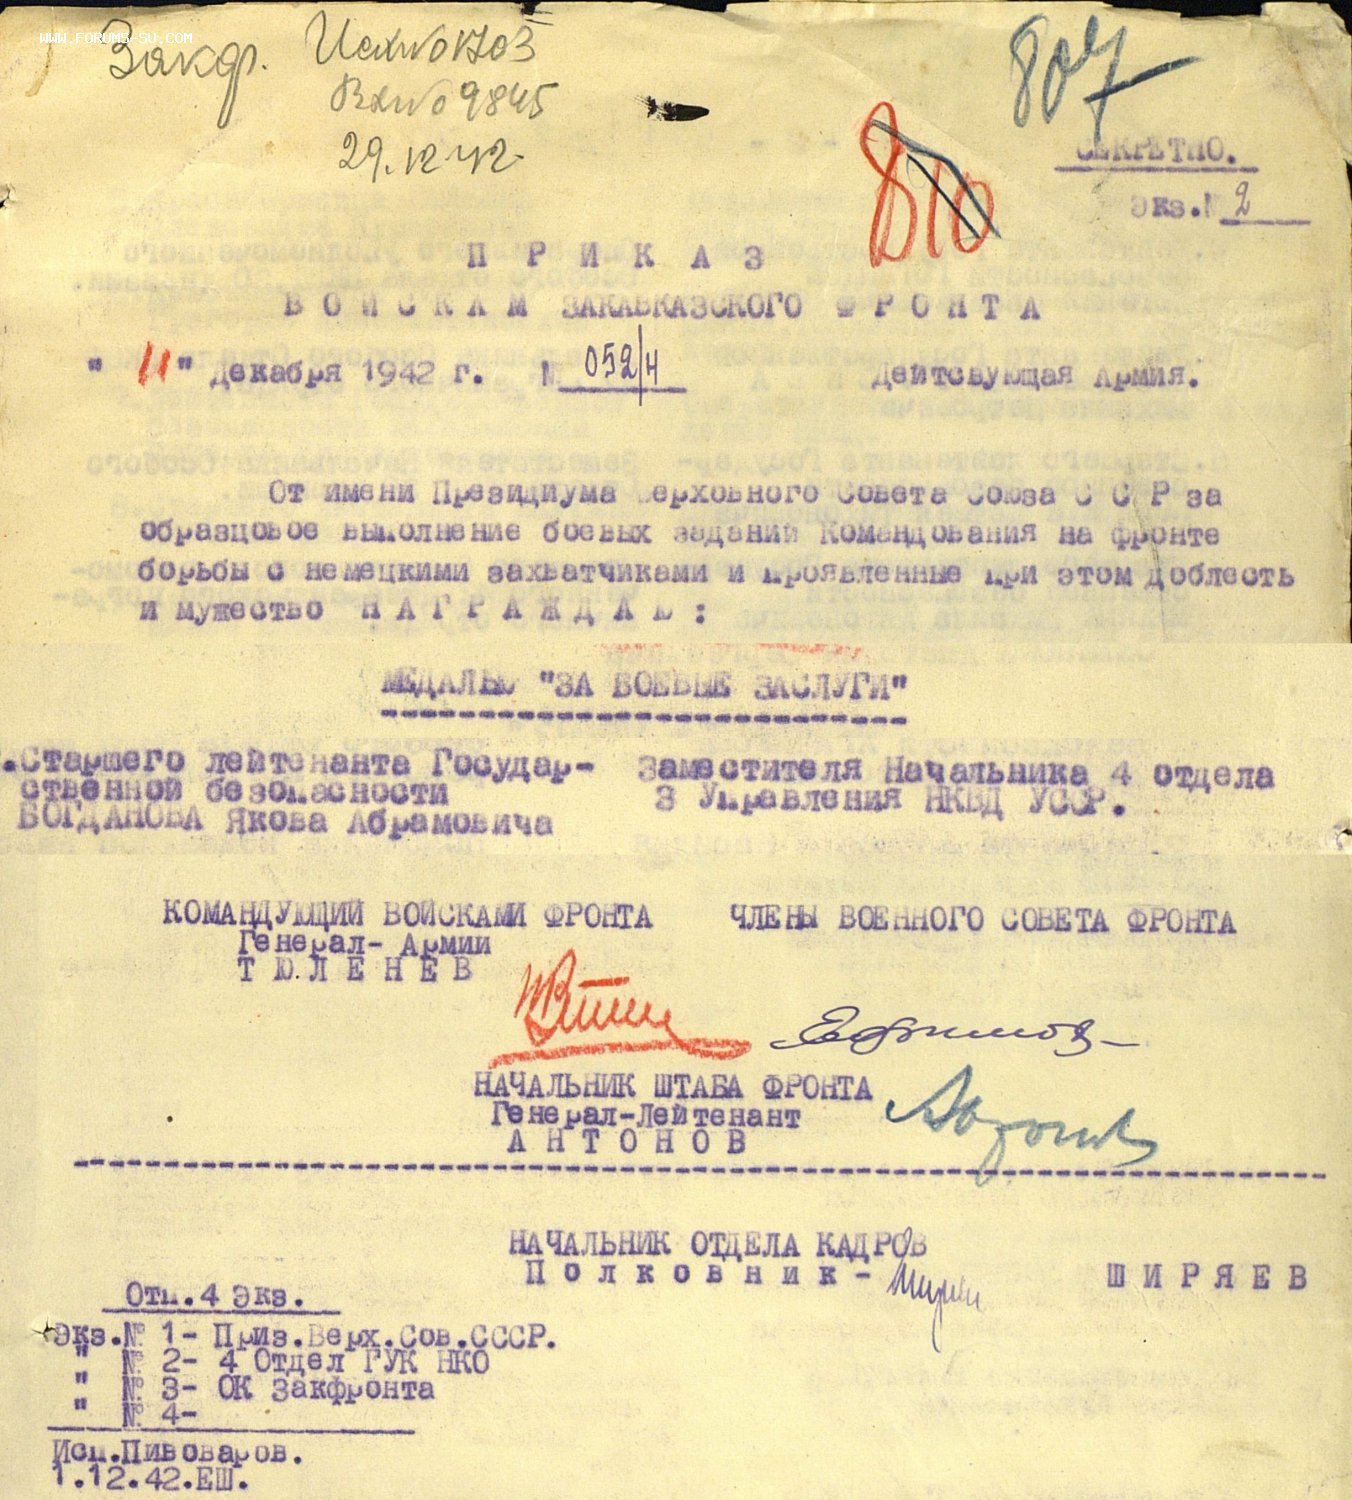 WWW.FORUMS-SU.COM
Закф. Исх №01703
Вх №09845
29.12.42
807
810
СЕКРЕТНО.
Экз.№ 2
П Р И К А З
В О Й С К А М ЗАКАВКАЗСКОГО Ф Р О Н Т А
" 11 " декабря 1942 г. № 052/н Действующая Армия.
От имени Президиума Верховного Совета Союза С С Р за
образцовое выполнение боевых заданий Командования на фронте
борьбы с немецкими захватчиками и проявленные при этом доблесть
и мужество Н А Г Р А Ж Д А Ю :
МЕДАЛЬЮ "ЗА БОЕВЫЕ ЗАСЛУГИ"
.Старшего лейтенанта Государ- Заместителя Начальника 4 отдела
ственной безопасности 3 Управления НКВД УССР.
БОГДАНОВА Якова Абрамовича
КОМАНДУЮЩИЙ ВОЙСКАМИ ФРОНТА ЧЛЕНЫ ВОЕННОГО СОВЕТА ФРОНТА
Генерал- Армии
Т Ю Л Е Н Е В
Ефимов
НАЧАЛЬНИК ШТАБА ФРОНТА
Генерал-Лейтенант
А Н Т О Н О В
НАЧАЛЬНИК ОТДЕЛА КАДРОВ
П о л к о в н и к - Ш И Р Я Е В
Отп.4 экз.
Экз.№ 1- През.Верх.Сов.СССР.
" № 2- 4 Отдел ГУК НКО
" № 3- ОК Закфронта
" № 4-
Исп.Пивоваров.
1.12.42.ЕШ.